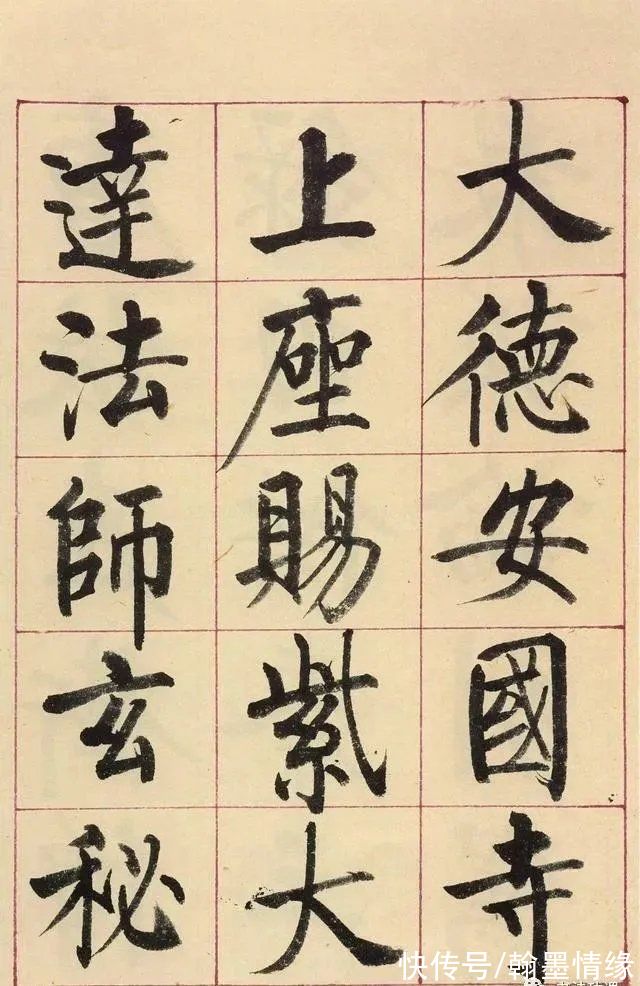 大德安國寺
上座賜紫大
達法師玄秘
快传号/翰墨情缘